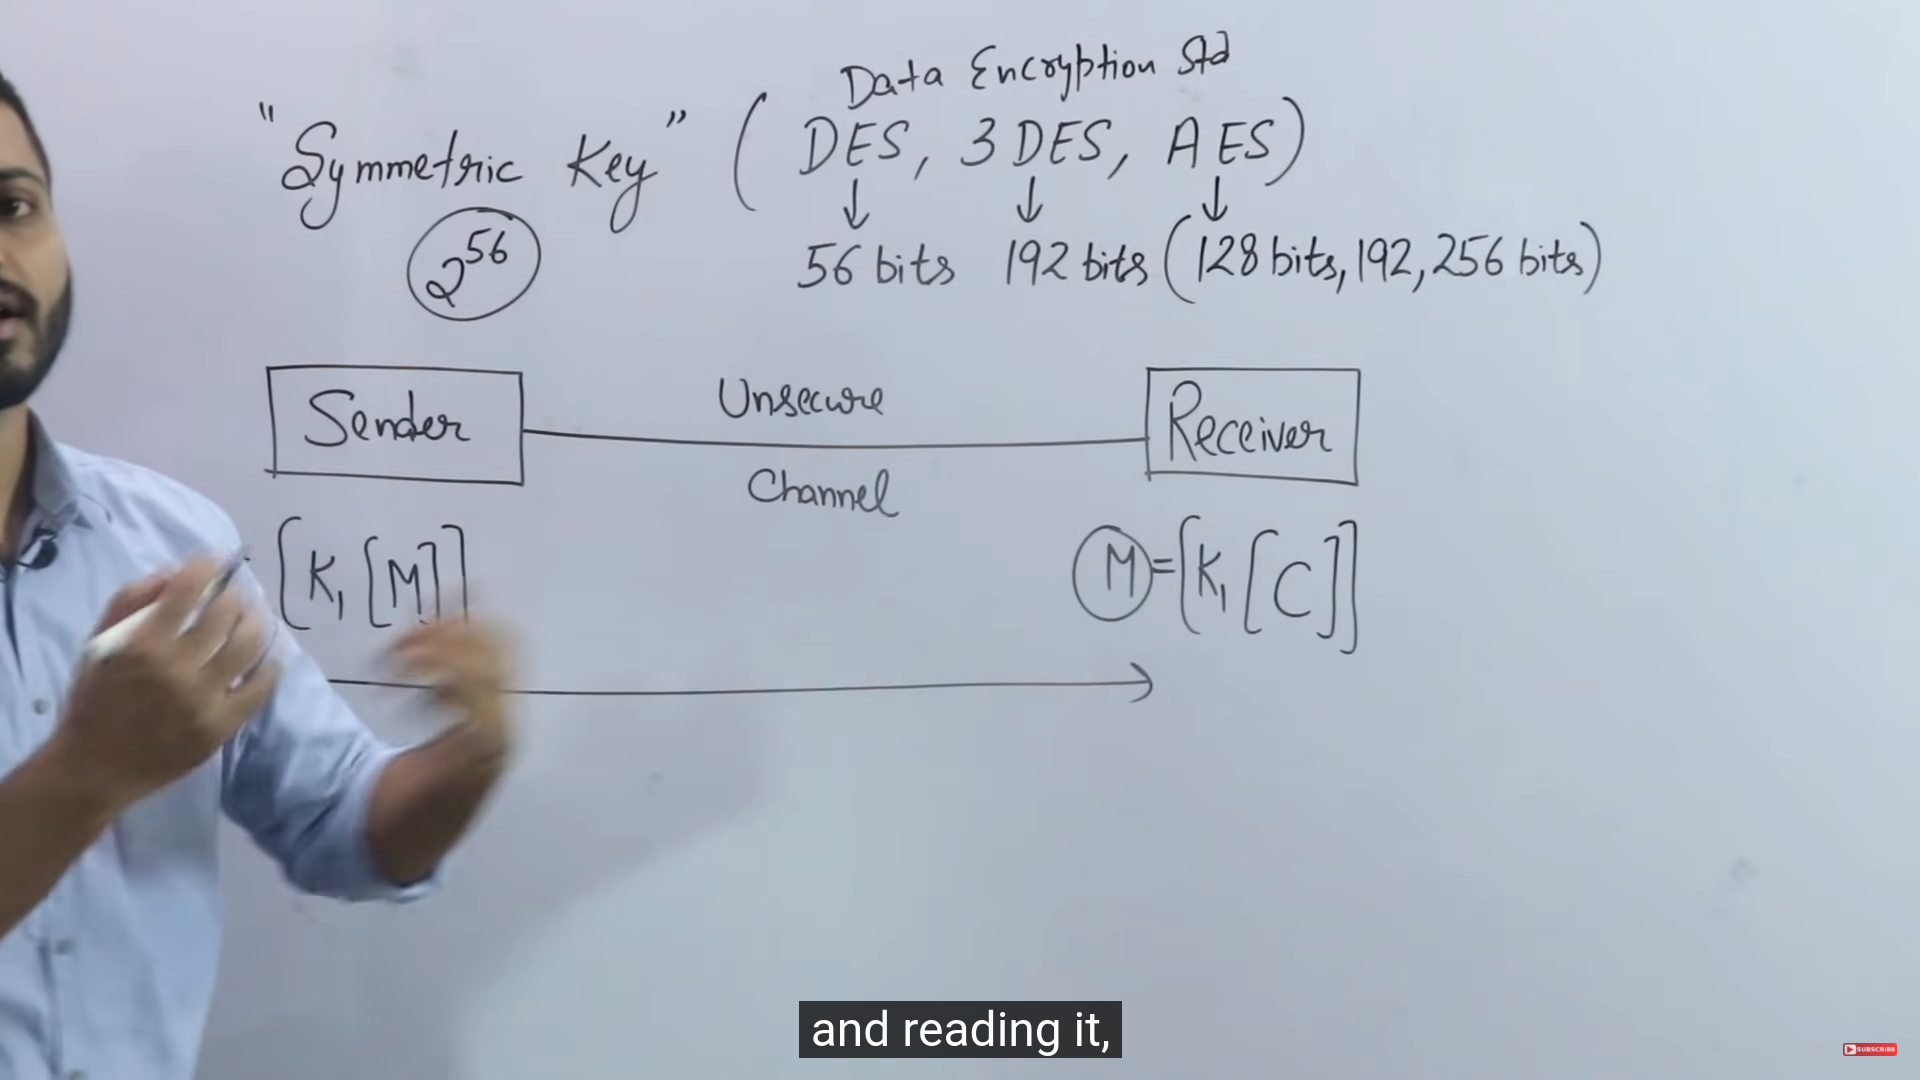 Data Encryption Std
"Symmetric Key" (DES, 3DES, AES)
2^56
56 bits 192 bits (128 bits, 192, 256 bits)
Sender
Unsecure
Channel
Receiver
[K1[M]]
M=[K1[C]]
and reading it,
SUBSCRIBE